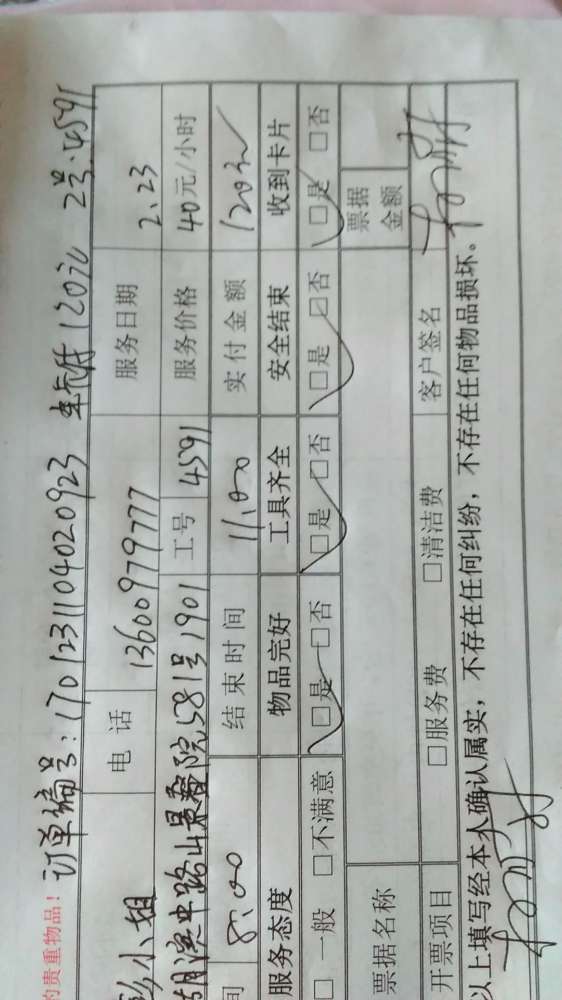 的贵重物品! 订单编号:1701231104020923 120元 2号·4591
彭小姐 电话 13600979777 服务日期 2.23
湖滨中路山景叠院581号1901 工号 4591 服务价格 40元/小时
间 8:00 结束时间 11:00 实付金额 120元
服务态度 物品完好 工具齐全 安全结束 收到卡片
□一般 □不满意 □是 □否 □是 □否 □是 □否 □是 □否
票据名称 票据金额
开票项目 □服务费 □清洁费 客户签名
以上填写经本人确认属实,不存在任何纠纷,不存在任何物品损坏。